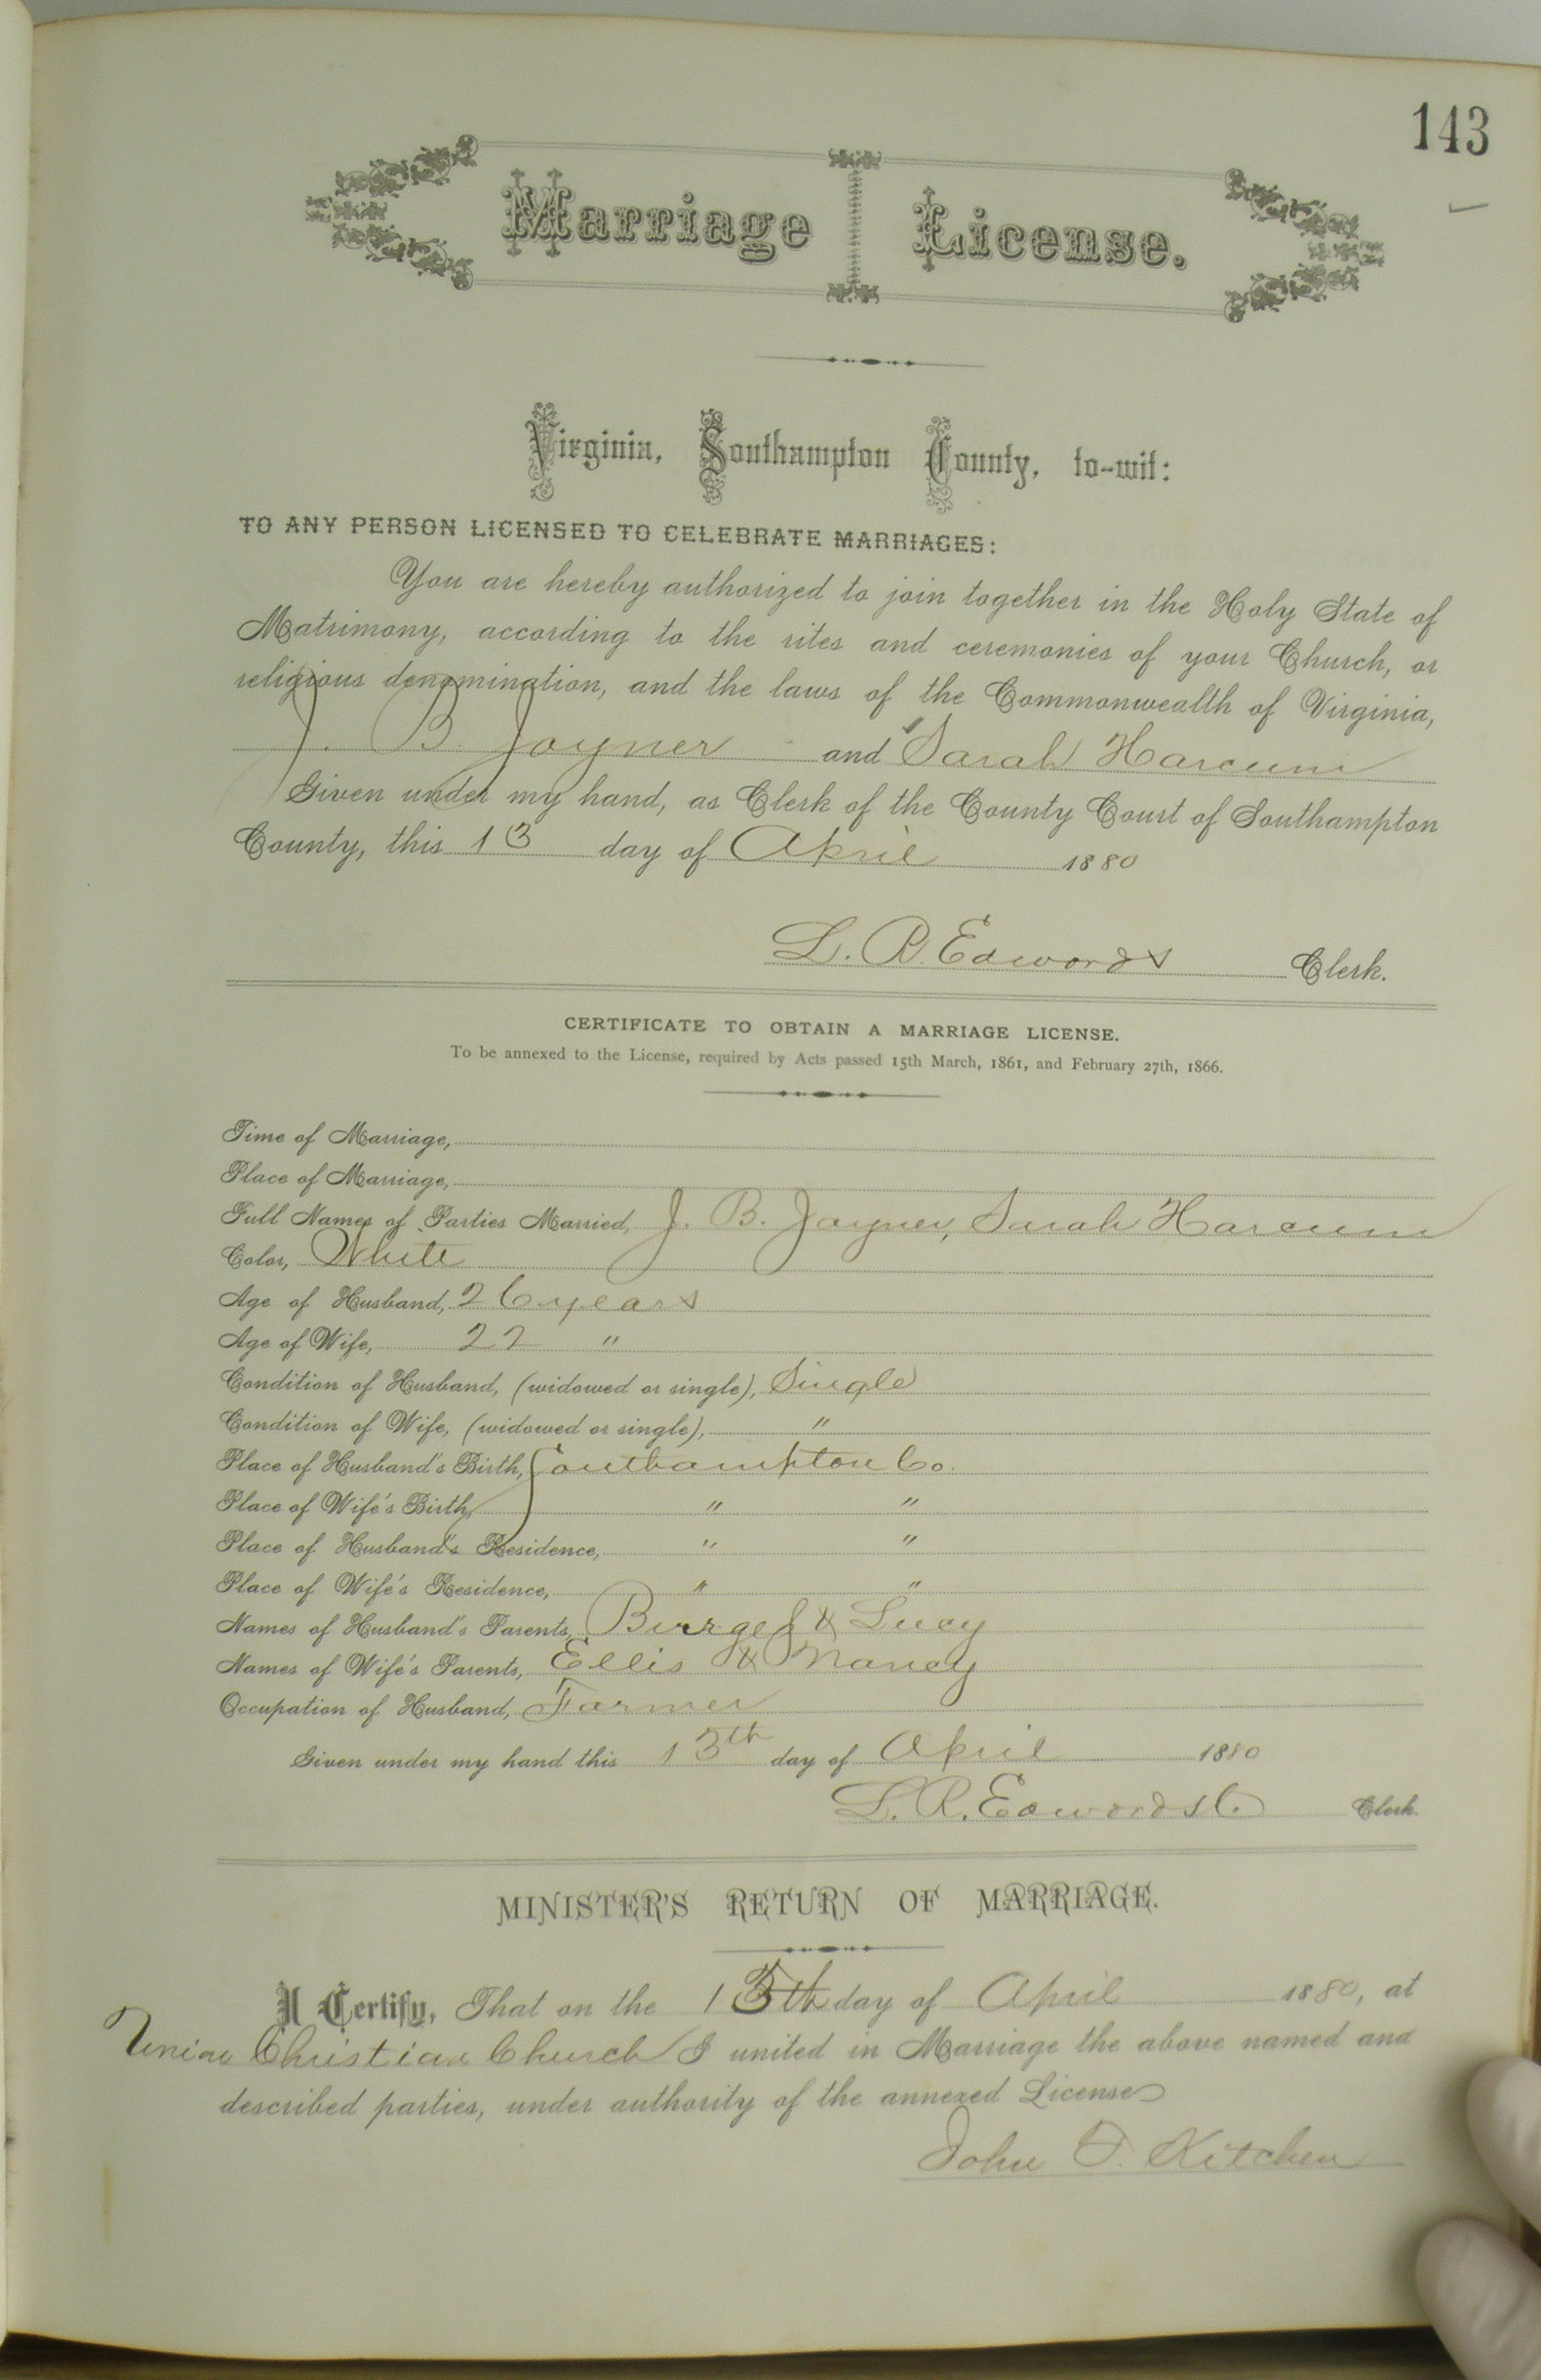 143
Marriage License.
Virginia, Southampton County, to-wit:
TO ANY PERSON LICENSED TO CELEBRATE MARRIAGES:
You are hereby authorized to join together in the Holy State of
Matrimony, according to the rites and ceremonies of your Church, or
religious denomination, and the laws of the Commonwealth of Virginia,
J. B. Joyner and Sarah Harcum
Given under my hand, as Clerk of the County Court of Southampton
County, this 13 day of April 1880
L. R. Edwards Clerk.
CERTIFICATE TO OBTAIN A MARRIAGE LICENSE.
To be annexed to the License, required by Acts passed 15th March, 1861, and February 27th, 1866.
Time of Marriage,
Place of Marriage,
Full Names of Parties Married, J. B. Joyner, Sarah Harcum
Color, White
Age of Husband, 26 years
Age of Wife, 22 "
Condition of Husband, (widowed or single), Single
Condition of Wife, (widowed or single), "
Place of Husband's Birth, Southampton Co.
Place of Wife's Birth, " "
Place of Husband's Residence, " "
Place of Wife's Residence, " "
Names of Husband's Parents, Burges & Lucy
Names of Wife's Parents, Ellis & Nancy
Occupation of Husband, Farmer
Given under my hand this 13th day of April 1880
L. R. Edwards C. Clerk.
MINISTER'S RETURN OF MARRIAGE.
I Certify, That on the 15th day of April 1880, at
Union Christian Church I united in Marriage the above named and
described parties, under authority of the annexed License
John T. Kitchen